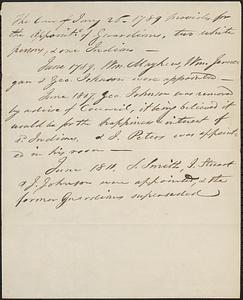 The Law of Jany 25th 1789 provides for
the appointt of Guardians, two white
persons, & one Indian —
June 1789. Wm Mayhew, Wm Jerne-
gan & Geo Johnson were appointed —
June 1807. Geo Johnson was removed
by advice of Council, it being believed it
would be for the happiness & interest of
sd Indians, & I. Peters was appoint-
ed in his room —
June 1811. S. Smith, J. Stuart
& J. Johnson were appointed, & the
former Guardians superseded